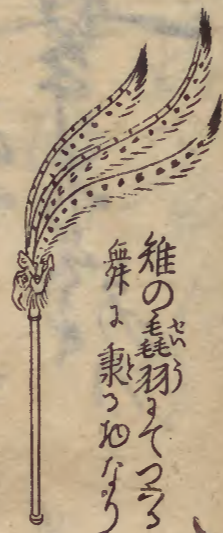 雉の毳羽にてつくる
舞に秉る物なり